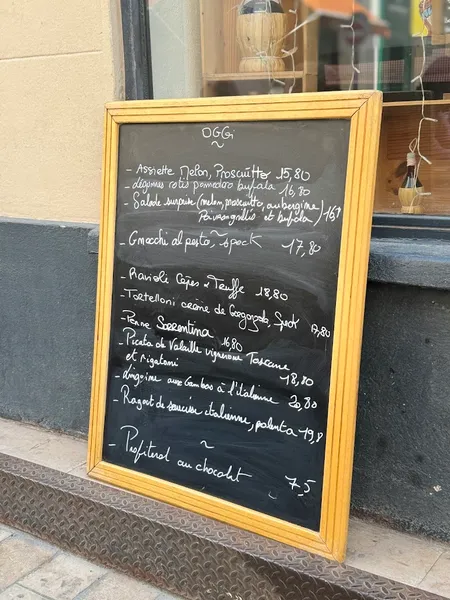 OGGi
~
- Assiette Melon, Prosciutto 15,80
- Légumes rotis pomodoro bufala 16,80
- Salade surprise (melon, prosciutto, aubergine
et bufala) 16
~
- Gnocchi al pesto, speck 17,80
- Ravioli Cèpes & Truffe 18,80
- Tortelloni crème de Gorgonzola, Speck 17,80
- Penne Sorrentina 16,80
- Picata de Volaille vigneronne Toscane
et rigatoni 18,80
- linguine aux Gambas à l'italienne 20,80
- Ragout de saucisse italienne, polenta 19,8
~
- Profiterol au chocolat 7,5